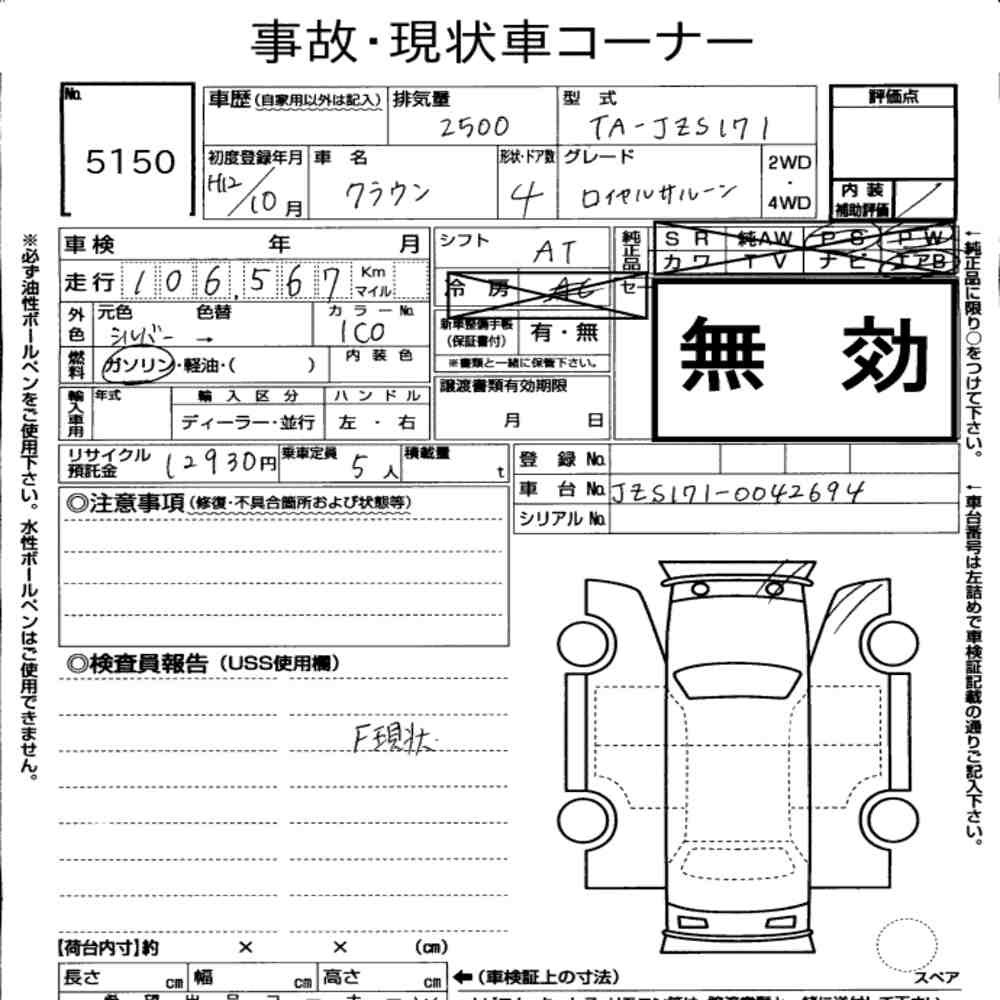 事故・現状車コーナー
No.
5150
車歴(自家用以外は記入)
排気量
2500
型式
TA-JZS171
評価点
初度登録年月
H12/10月
車名
クラウン
形状・ドア数
4
グレード
ロイヤルサルーン
2WD
・
4WD
内装
補助評価
車検 年 月
シフト
AT
純正品
SR 純AW PS PW
カワ TV ナビ エアB
走行 106,567 Km
マイル
冷房 AC
セ
外色
元色 色替
シルバー →
カラーNo.
1C0
新車整備手帳
(保証書付)
有・無
※書類と一緒に保管下さい。
無効
燃料
ガソリン・軽油・( )
内装色
譲渡書類有効期限
月 日
輸入車用
年式
輸入区分
ディーラー・並行
ハンドル
左・右
リサイクル
預託金
12930円
乗車定員
5人
積載量
t
登録No.
車台No. JZS171-0042694
シリアルNo.
◎注意事項(修復・不具合箇所および状態等)
◎検査員報告(USS使用欄)
F現状
【荷台内寸】約 × × (cm)
長さ cm 幅 cm 高さ cm
←(車検証上の寸法)
スペア
※必ず油性ボールペンをご使用下さい。水性ボールペンはご使用できません。
←純正品に限り○をつけて下さい。
←車台番号は左詰めで車検証記載の通りご記入下さい。